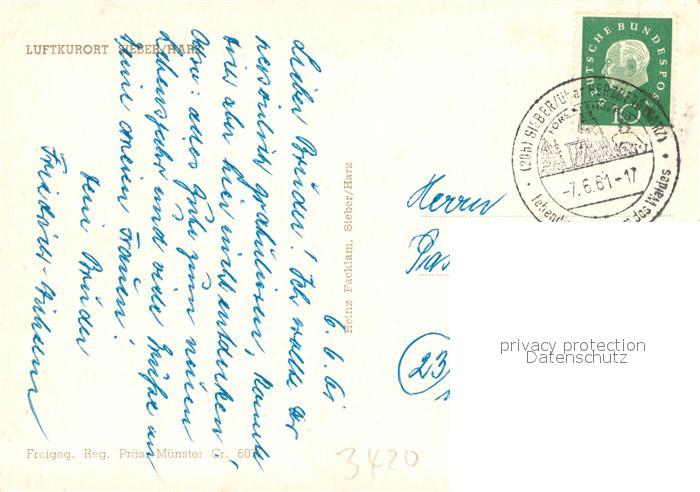 LUFTKURORT SIEBER/HARZ
6. 6. 61
Lieber Bruder! Ich wollte Dir
persönlich gratulieren, konnte
Dich aber hier nicht entdecken!
Also: alles Gute zum neuen
Lebensjahr und viele Grüße an
Deine Frauen!
Dein Bruder
Friedrich-Wilhelm
Freigeg. Reg. Präs. Münster Gr. 60
Heinz Facklam, Sieber/Harz
DEUTSCHE BUNDESPOST
10
(20b) SIEBER/über HERZBERG (HARZ)
-7.6.61-17
des Waldes
Herrn
23
3420
privacy protection
Datenschutz